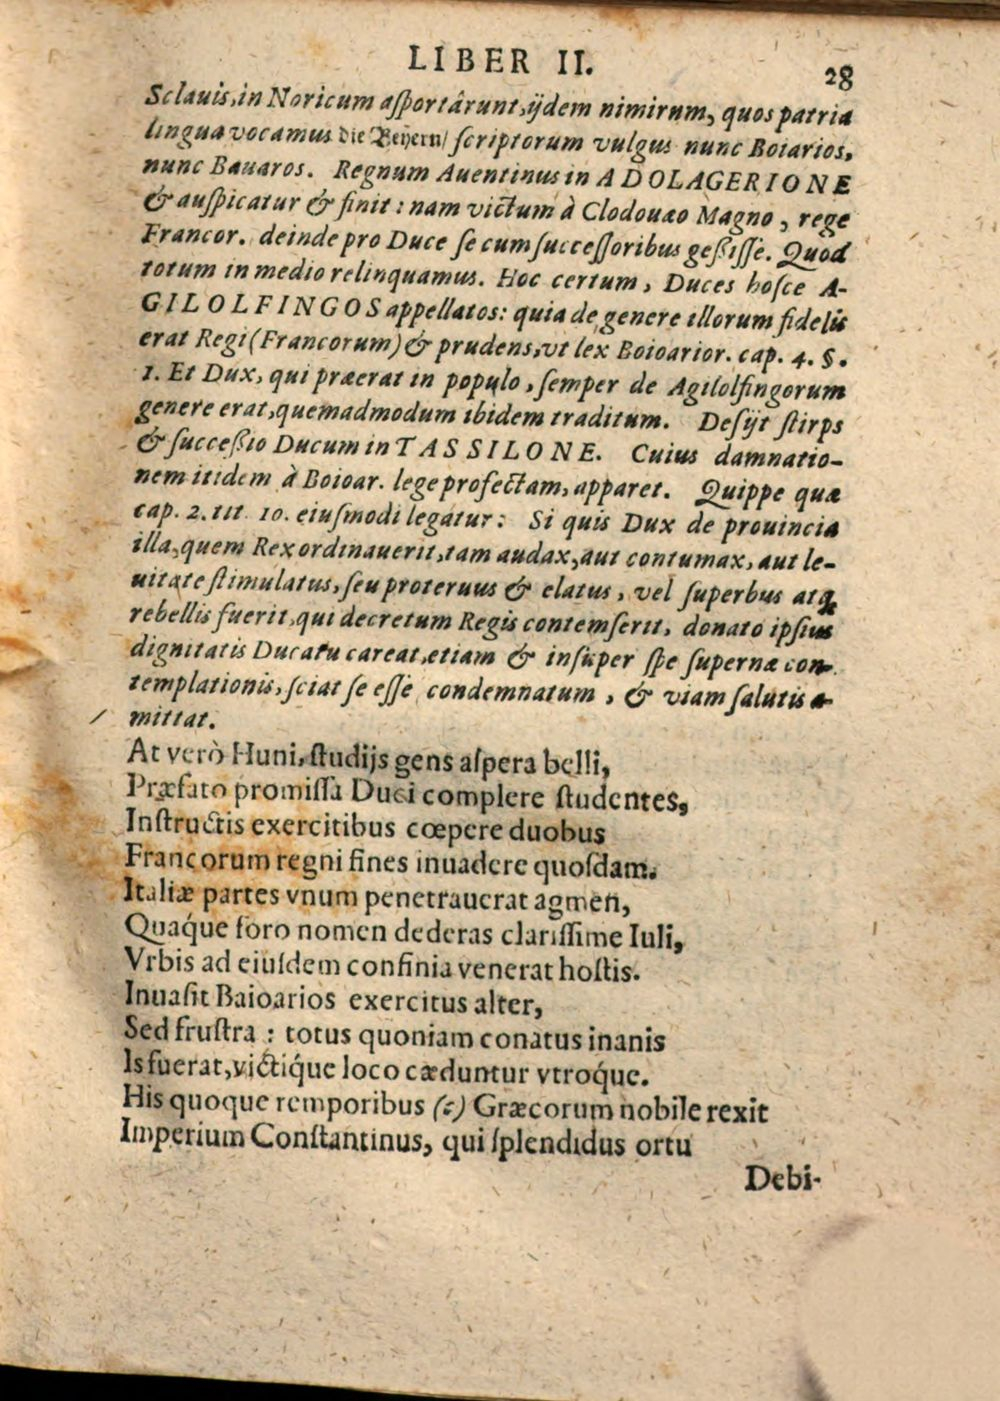 LIBER II.
28
Sclauis, in Noricum aſportârunt, ijdem nimirum, quos patria
lingua vocamus die Beyern/ ſcriptorum vulgus nunc Boiarios,
nunc Bauaros. Regnum Auentinus in ADOLAGERIONE
& auſpicatur & finit: nam victum à Clodouæo Magno, rege
Francor. deinde pro Duce ſe cum ſucceſſoribus geſſiſſe. Quod
totum in medio relinquamus. Hoc certum, Duces hoſce A-
GILOLFINGOS appellatos: quia de genere illorum fidelis
erat Regi (Francorum) & prudens, vt lex Boioarior. cap. 4. §.
1. Et Dux, qui præerat in populo, ſemper de Agilolfingorum
genere erat, quemadmodum ibidem traditum. Deſijt ſtirps
& ſucceſſio Ducum in TASSILONE. Cuius damnatio-
nem itidem à Boioar. lege profectam, apparet. Quippe quæ
cap. 2. tit 10. eiuſmodi legatur: Si quis Dux de prouincia
illa, quem Rex ordinauerit, tam audax, aut contumax, aut le-
uitate ſtimulatus, ſeu proteruus & elatus, vel ſuperbus atq;
rebellis fuerit, qui decretum Regis contemſerit, donato ipſius
dignitatis Ducatu careat, etiam & inſuper ſpe ſupernæ con-
templationis, ſciat ſe eſſe condemnatum, & viam ſalutis a-
mittat.
At verò Huni, ſtudijs gens aſpera belli,
Præfato promiſſa Duci complere ſtudentes,
Inſtructis exercitibus cœpere duobus
Francorum regni fines inuadere quoſdam.
Italiæ partes vnum penetrauerat agmen,
Quáque foro nomen dederas clariſſime Iuli,
Vrbis ad eiuſdem confinia venerat hoſtis.
Inuaſit Baioarios exercitus alter,
Sed fruſtra: totus quoniam conatus inanis
Is fuerat, victíque loco cæduntur vtroque.
His quoque temporibus (c) Græcorum nobile rexit
Imperium Conſtantinus, qui ſplendidus ortu
Debi-